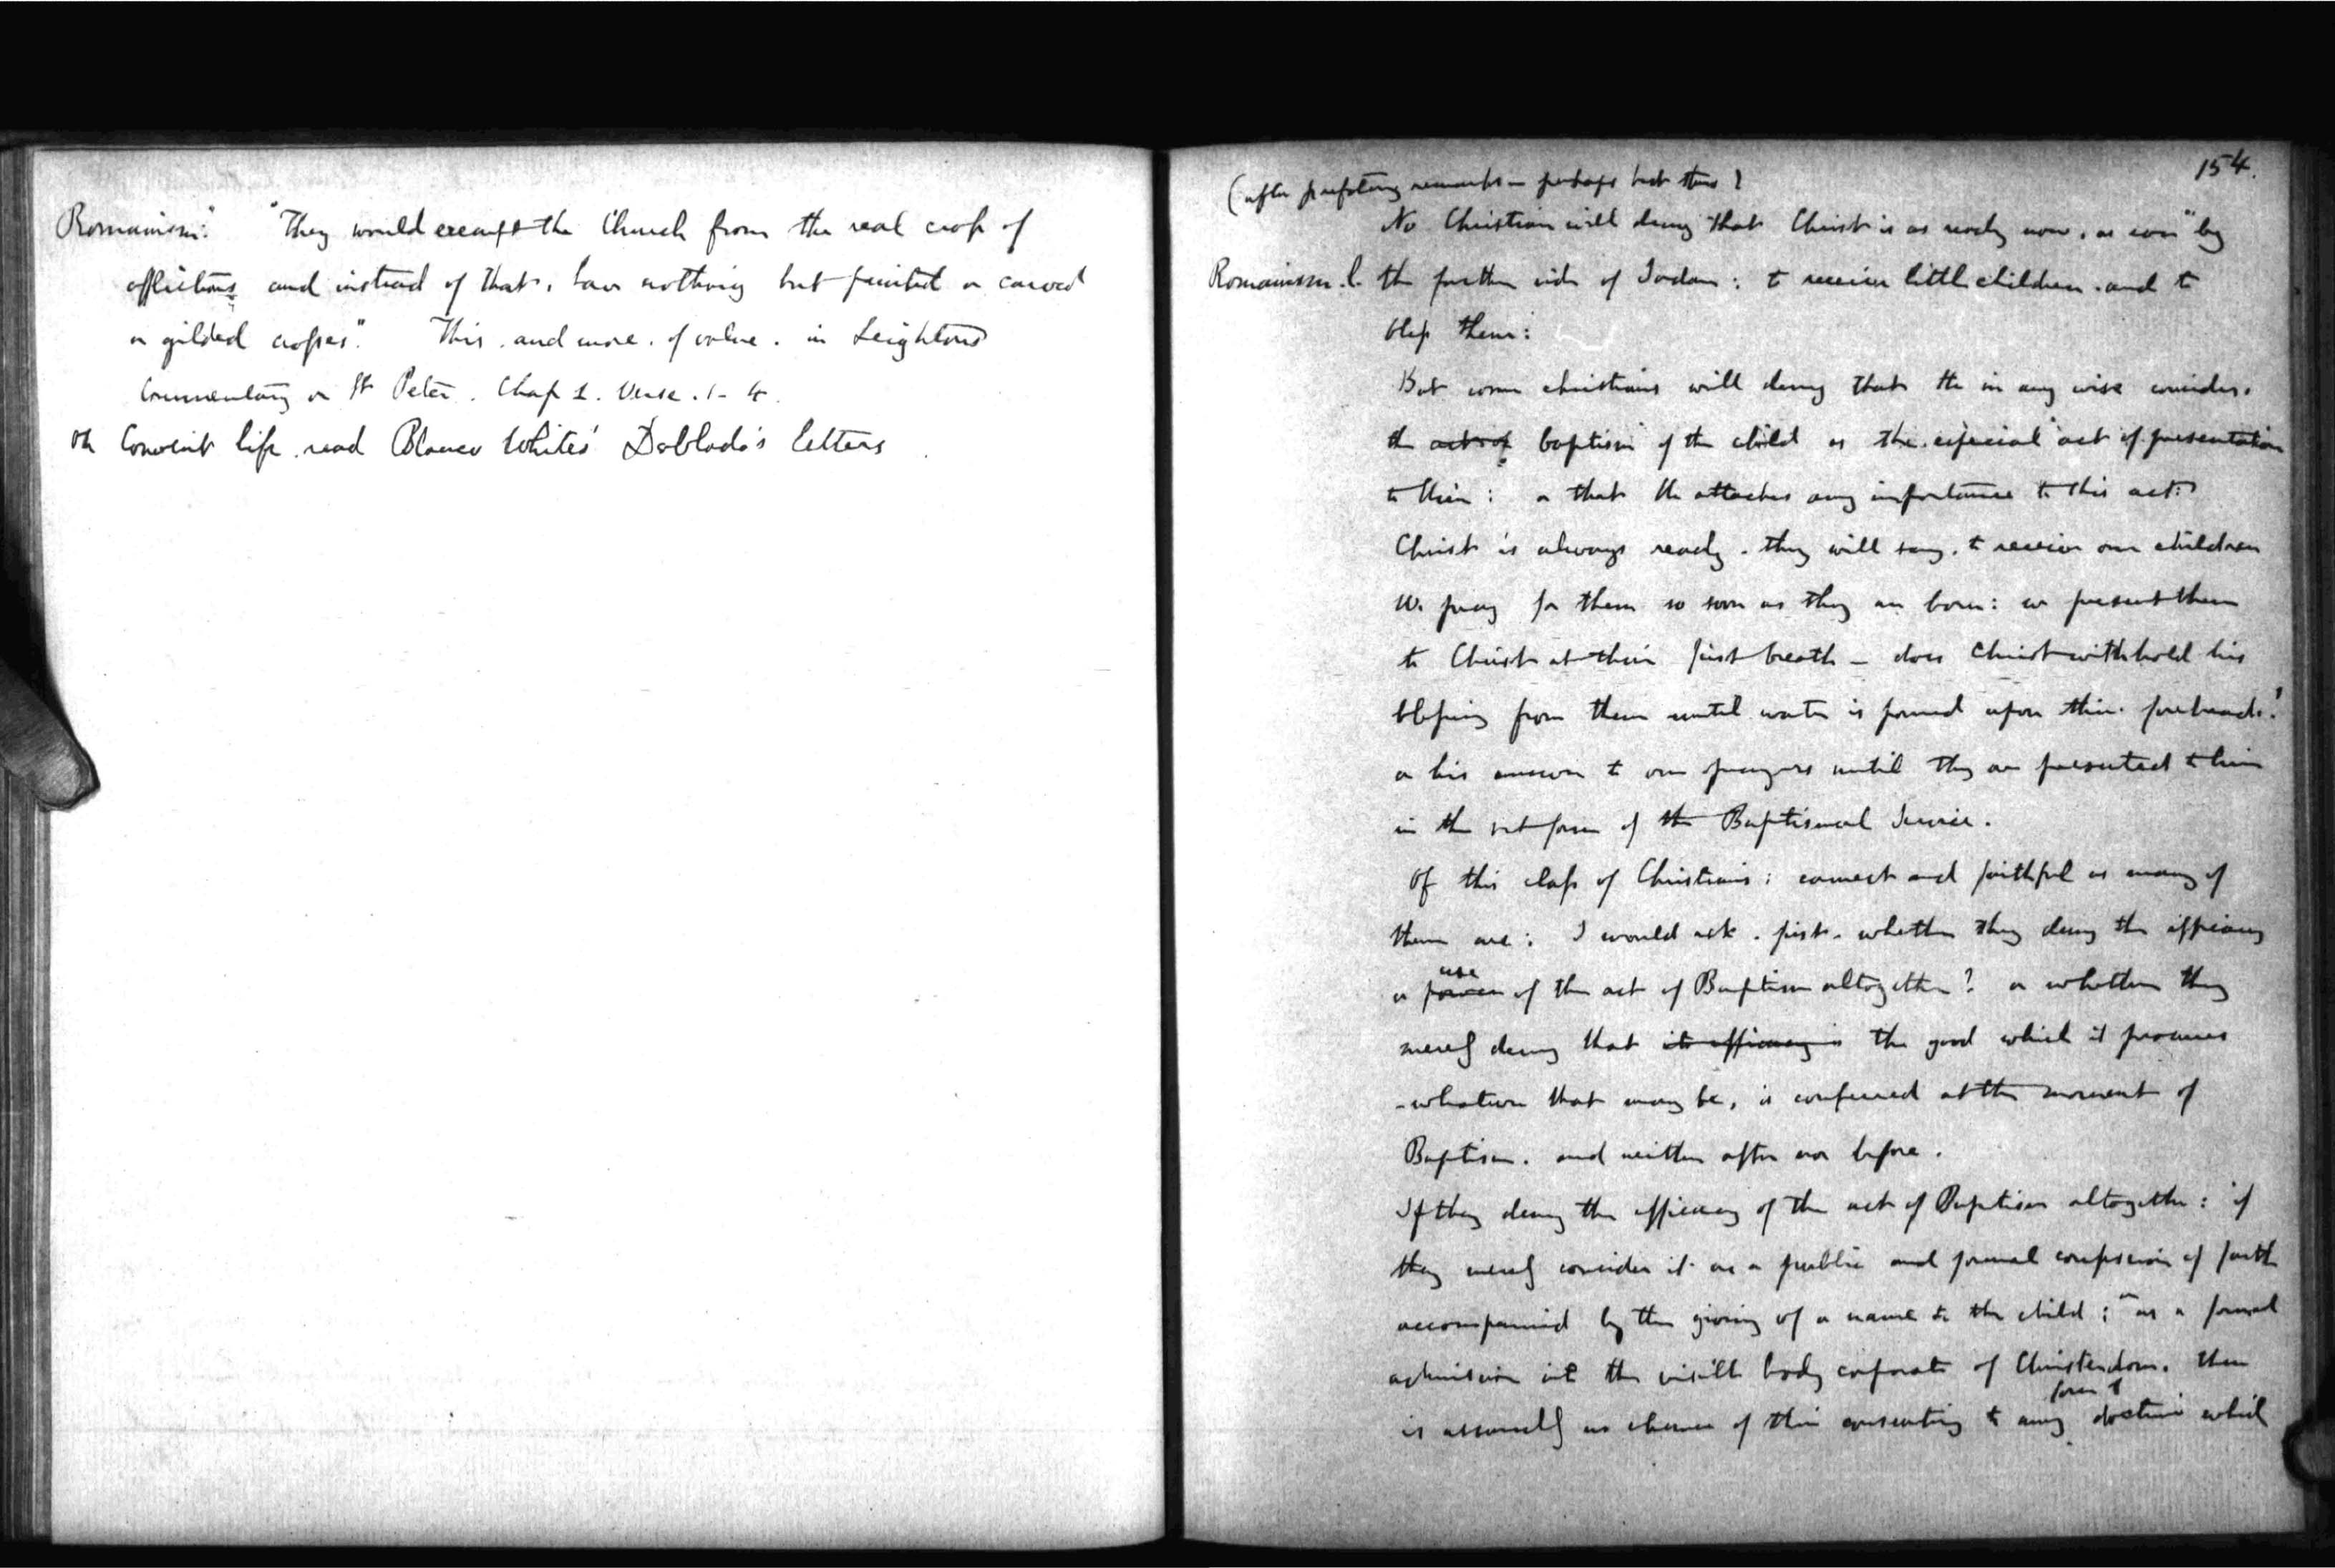 Romanism." "They would exempt the Church from the real cross of
afflictions and instead of that, have nothing but painted or carved
or gilded crosses". This. and more. of value. in Leightons
Commentary on St Peter. Chap 1. Verse. 1-4.
On Convent life. read Blanco Whites' Doblado's letters
154.
(after prefatory remarks — perhaps
No Christian will deny that Christ is as ready now, as ever "by
Romanism. l. the farther side of Jordan: to receive little children. and to
bless them:
But some christians will deny that He in any wise considers.
the act of baptism of the child as the especial act of presentation
to Him: or that He attaches any importance to this act:
Christ is always ready. they will say. to receive our children
We pray for them so soon as they are born: we present them
to Christ at their first breath — does Christ withhold his
blessing from them until water is poured upon their foreheads?
or his answer to our prayers until they are presented to him
in the set form of the Baptismal Service.
Of this class of Christians: earnest and faithful as many of
them are: I would ask. first. whether they deny the efficacy
use
or power of the act of Baptism altogether? or whether they
merely deny that its efficacy is the good which it procures
-whatever that may be, is conferred at the moment of
Baptism. and neither after nor before.
If they deny the efficacy of the act of Baptism altogether: if
they merely consider it as a public and formal confession of faith
accompanied by the giving of a name to the child; as a formal
admission into the visible body corporate of Christendom. there
form of
is assuredly no chance of their consenting to any doctrine which